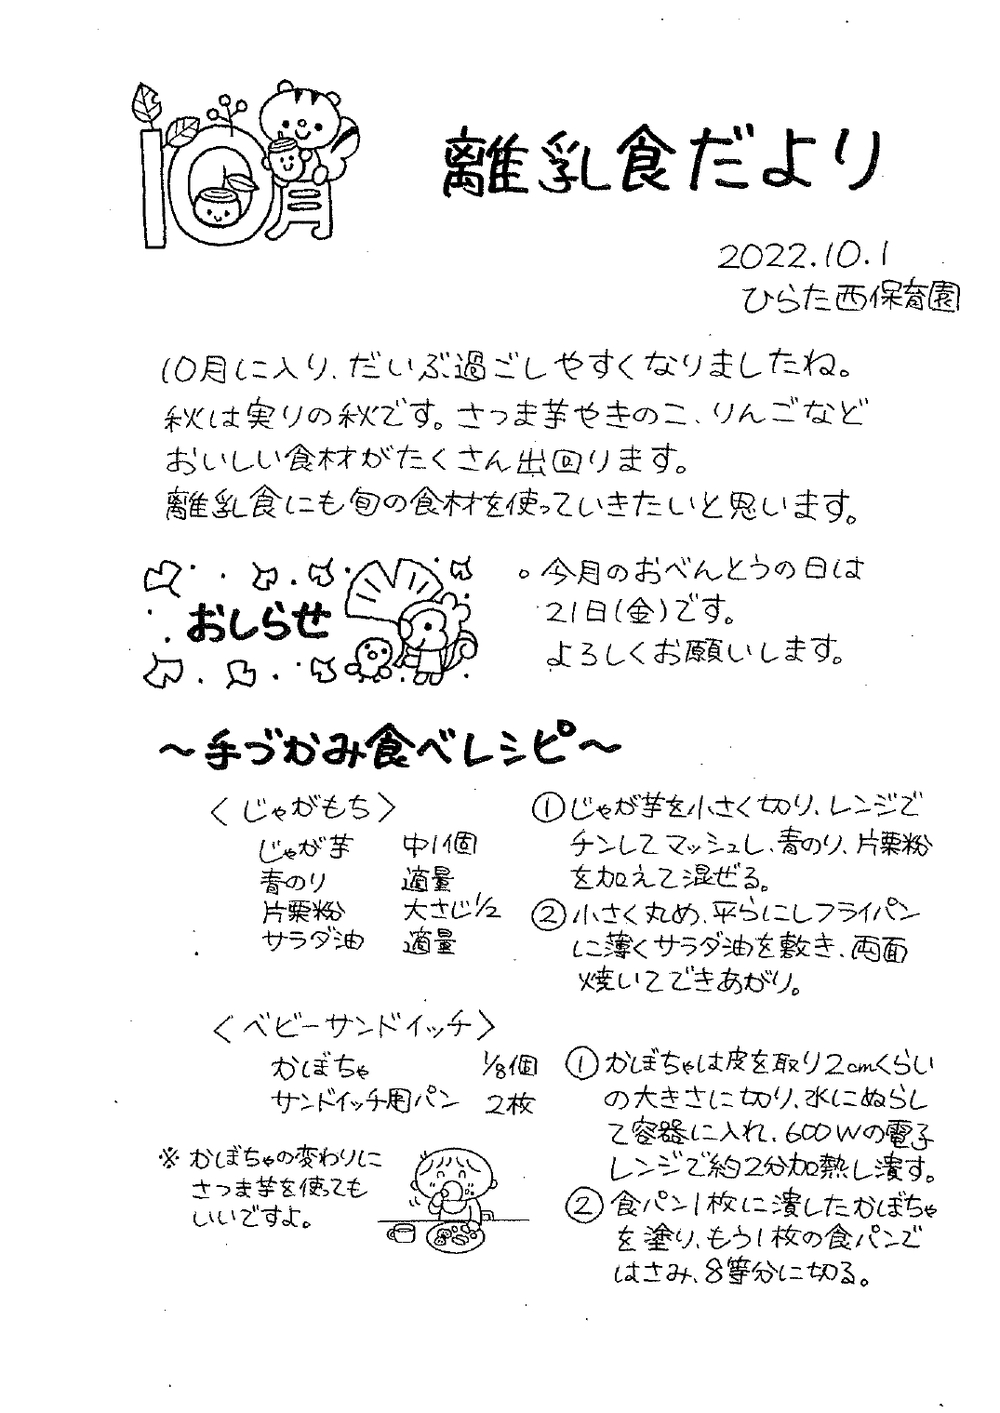 10月
離乳食だより
2022.10.1
ひらた西保育園
10月に入り、だいぶ過ごしやすくなりましたね。
秋は実りの秋です。さつま芋やきのこ、りんごなど
おいしい食材がたくさん出回ります。
離乳食にも旬の食材を使っていきたいと思います。
おしらせ
○今月のおべんとうの日は
21日(金)です。
よろしくお願いします。
～手づかみ食べレシピ～
〈じゃがもち〉
じゃが芋 中1個
青のり 適量
片栗粉 大さじ1/2
サラダ油 適量
①じゃが芋を小さく切り、レンジで
チンしてマッシュし、青のり、片栗粉
を加えて混ぜる。
②小さく丸め、平らにしフライパン
に薄くサラダ油を敷き、両面
焼いてできあがり。
〈ベビーサンドイッチ〉
かぼちゃ 1/8個
サンドイッチ用パン 2枚
※かぼちゃの変わりに
さつま芋を使っても
いいですよ。
①かぼちゃは皮を取り2cmくらい
の大きさに切り、水にぬらし
て容器に入れ、600Wの電子
レンジで約2分加熱し潰す。
②食パン1枚に潰したかぼちゃ
を塗り、もう1枚の食パンで
はさみ、8等分に切る。